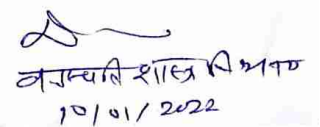 वनस्पति शास्त्र विभाग
10/01/2022